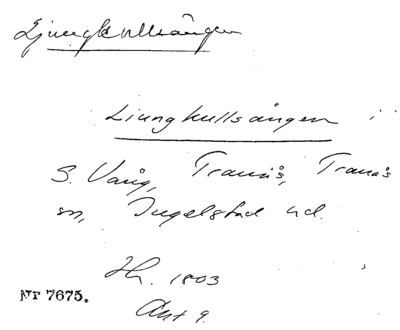 Ljungkullsången
Liungkullsången i
S. Vång, Tranås, Tranås
sn, Ingelstad hd.
Hr. 1803
Akt 9.
Nr 7675.